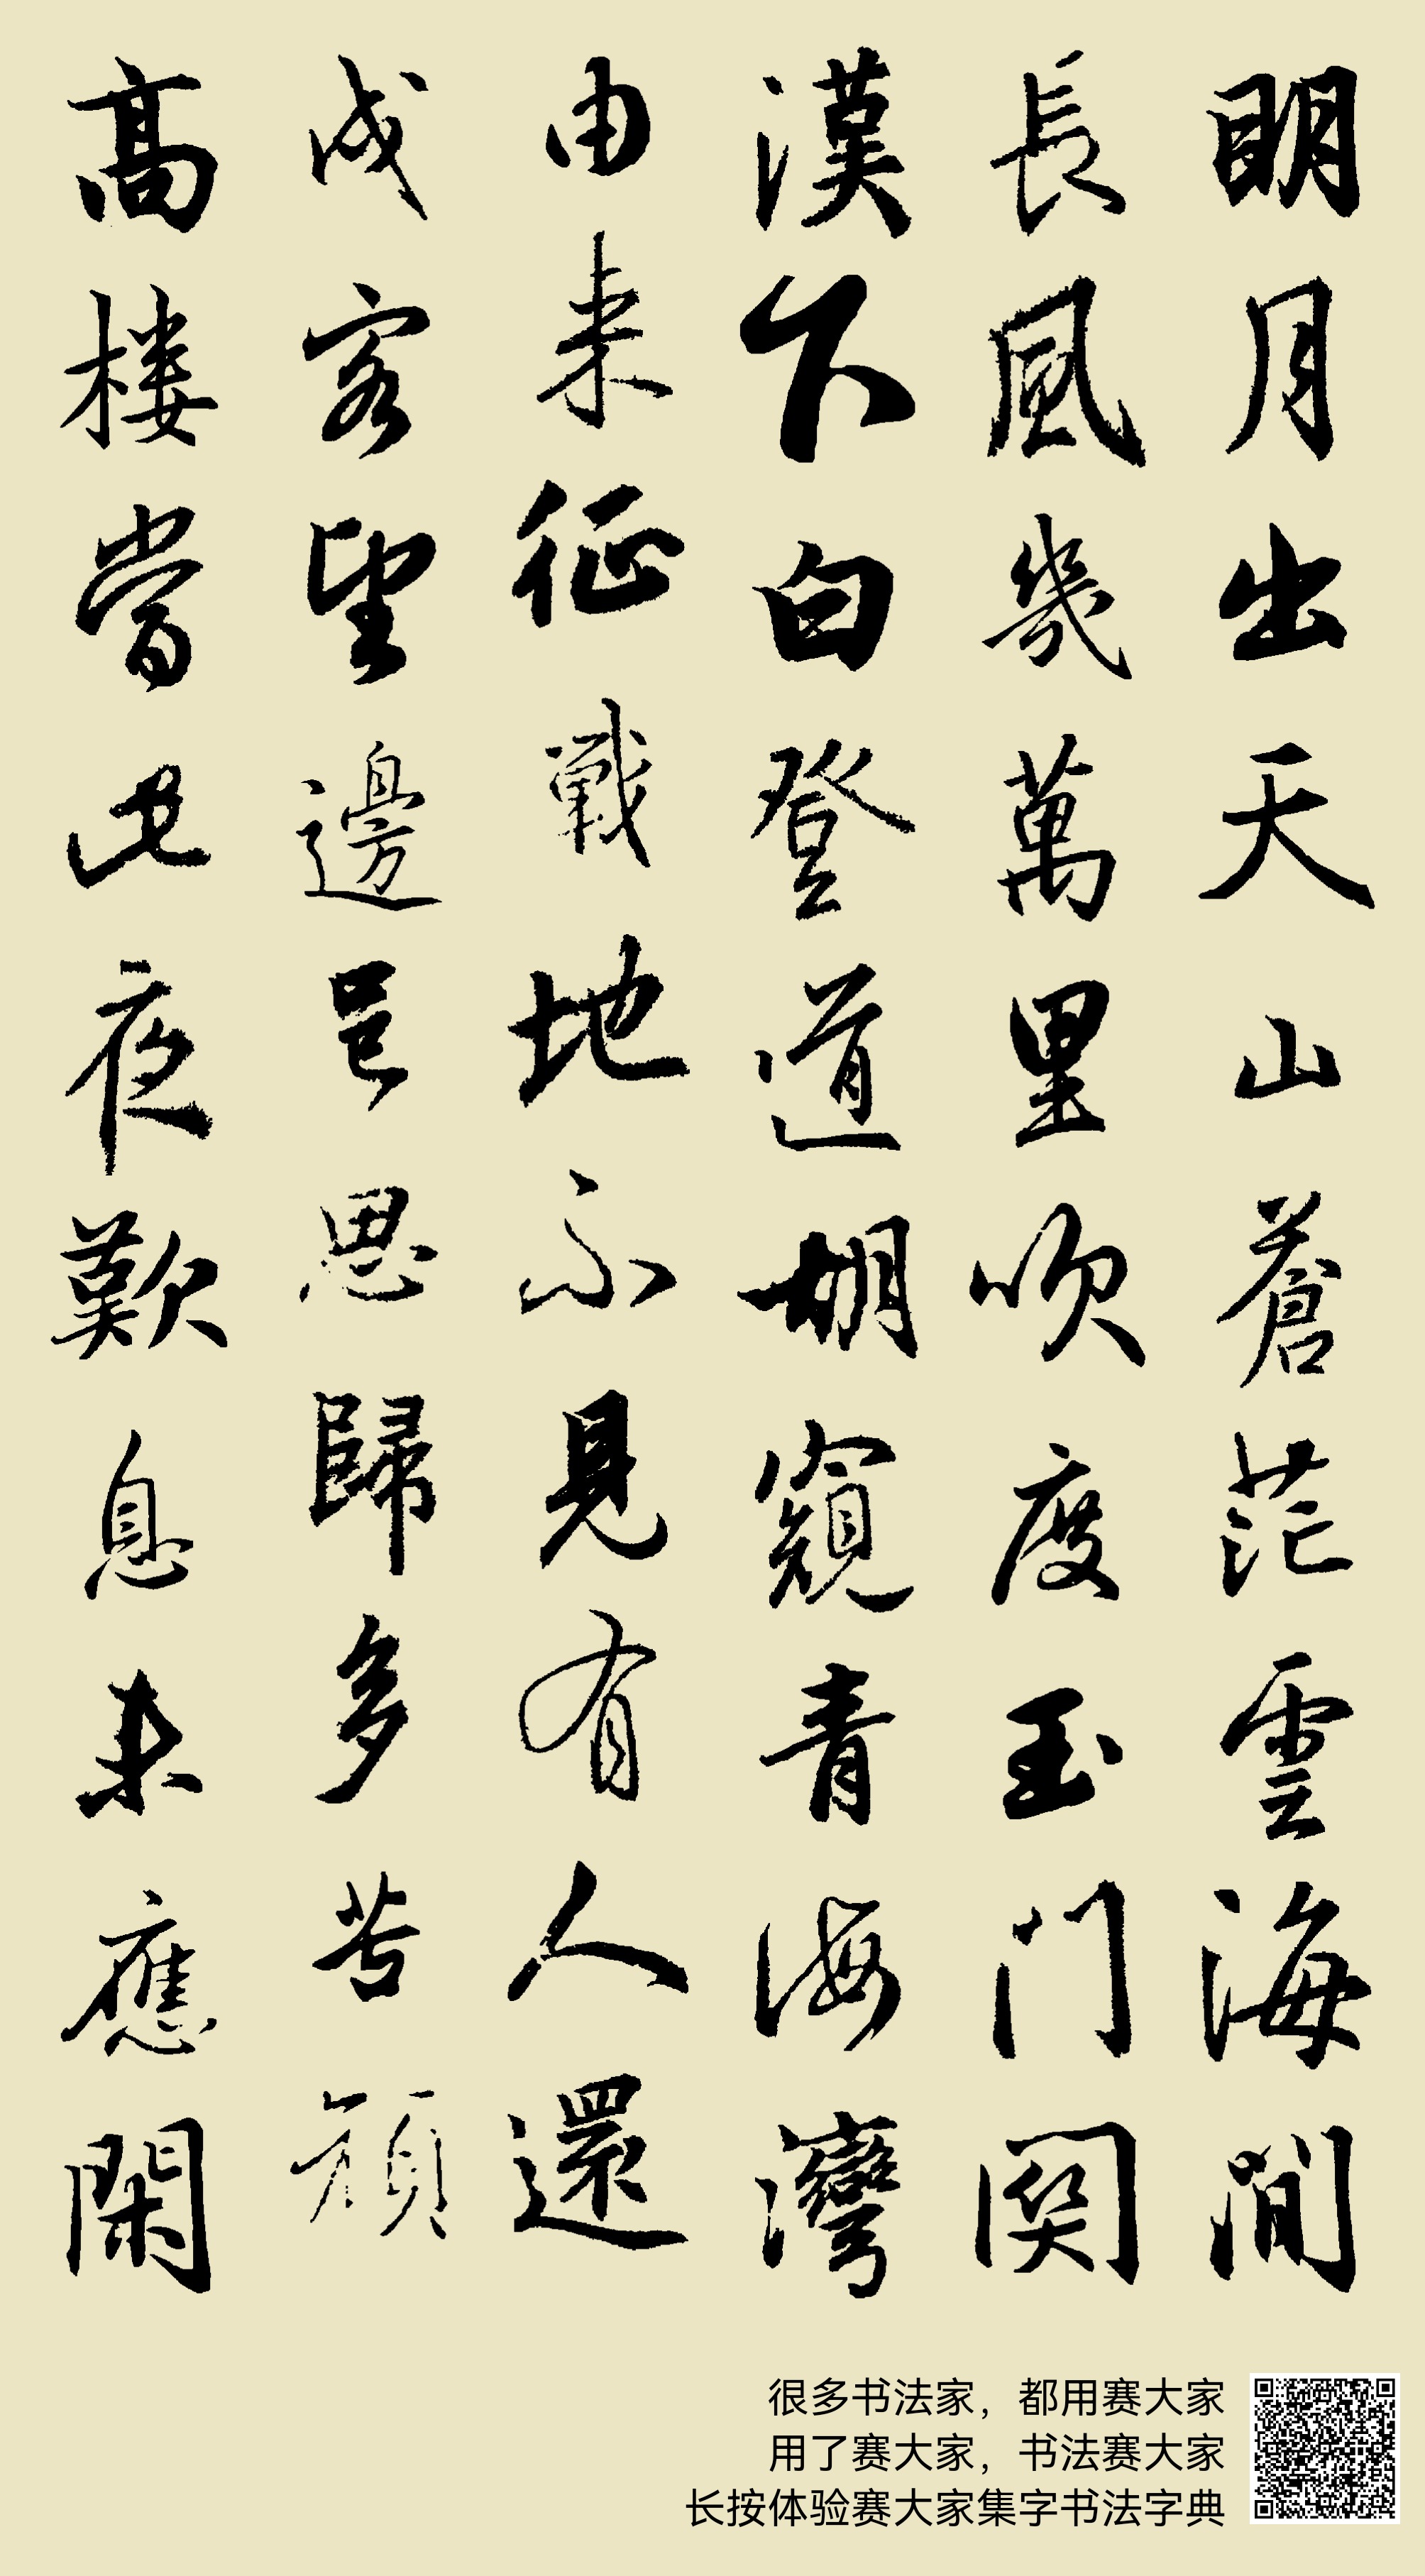 明月出天山蒼茫雲海間
長風幾萬里吹度玉门関
漢下白登道胡窺青海灣
由来征戰地不見有人還
戍客望邊邑思歸多苦顔
高樓當此夜歎息未應閑
很多书法家，都用赛大家
用了赛大家，书法赛大家
长按体验赛大家集字书法字典